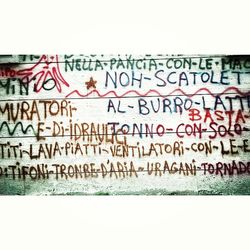 NELLA-PANCIA-CON-LE-MAC
NOH-SCATOLET
MURATORI- AL-BURRO-LATT
BASTA-
E-DI-IDRAULI TONNO-CON-SOLO
TITI-LAVA-PIATTI-VENTILATORI-CON-LE-E
O-TIFONI-TROMBE-D'ARIA-URAGANI-TORNADO